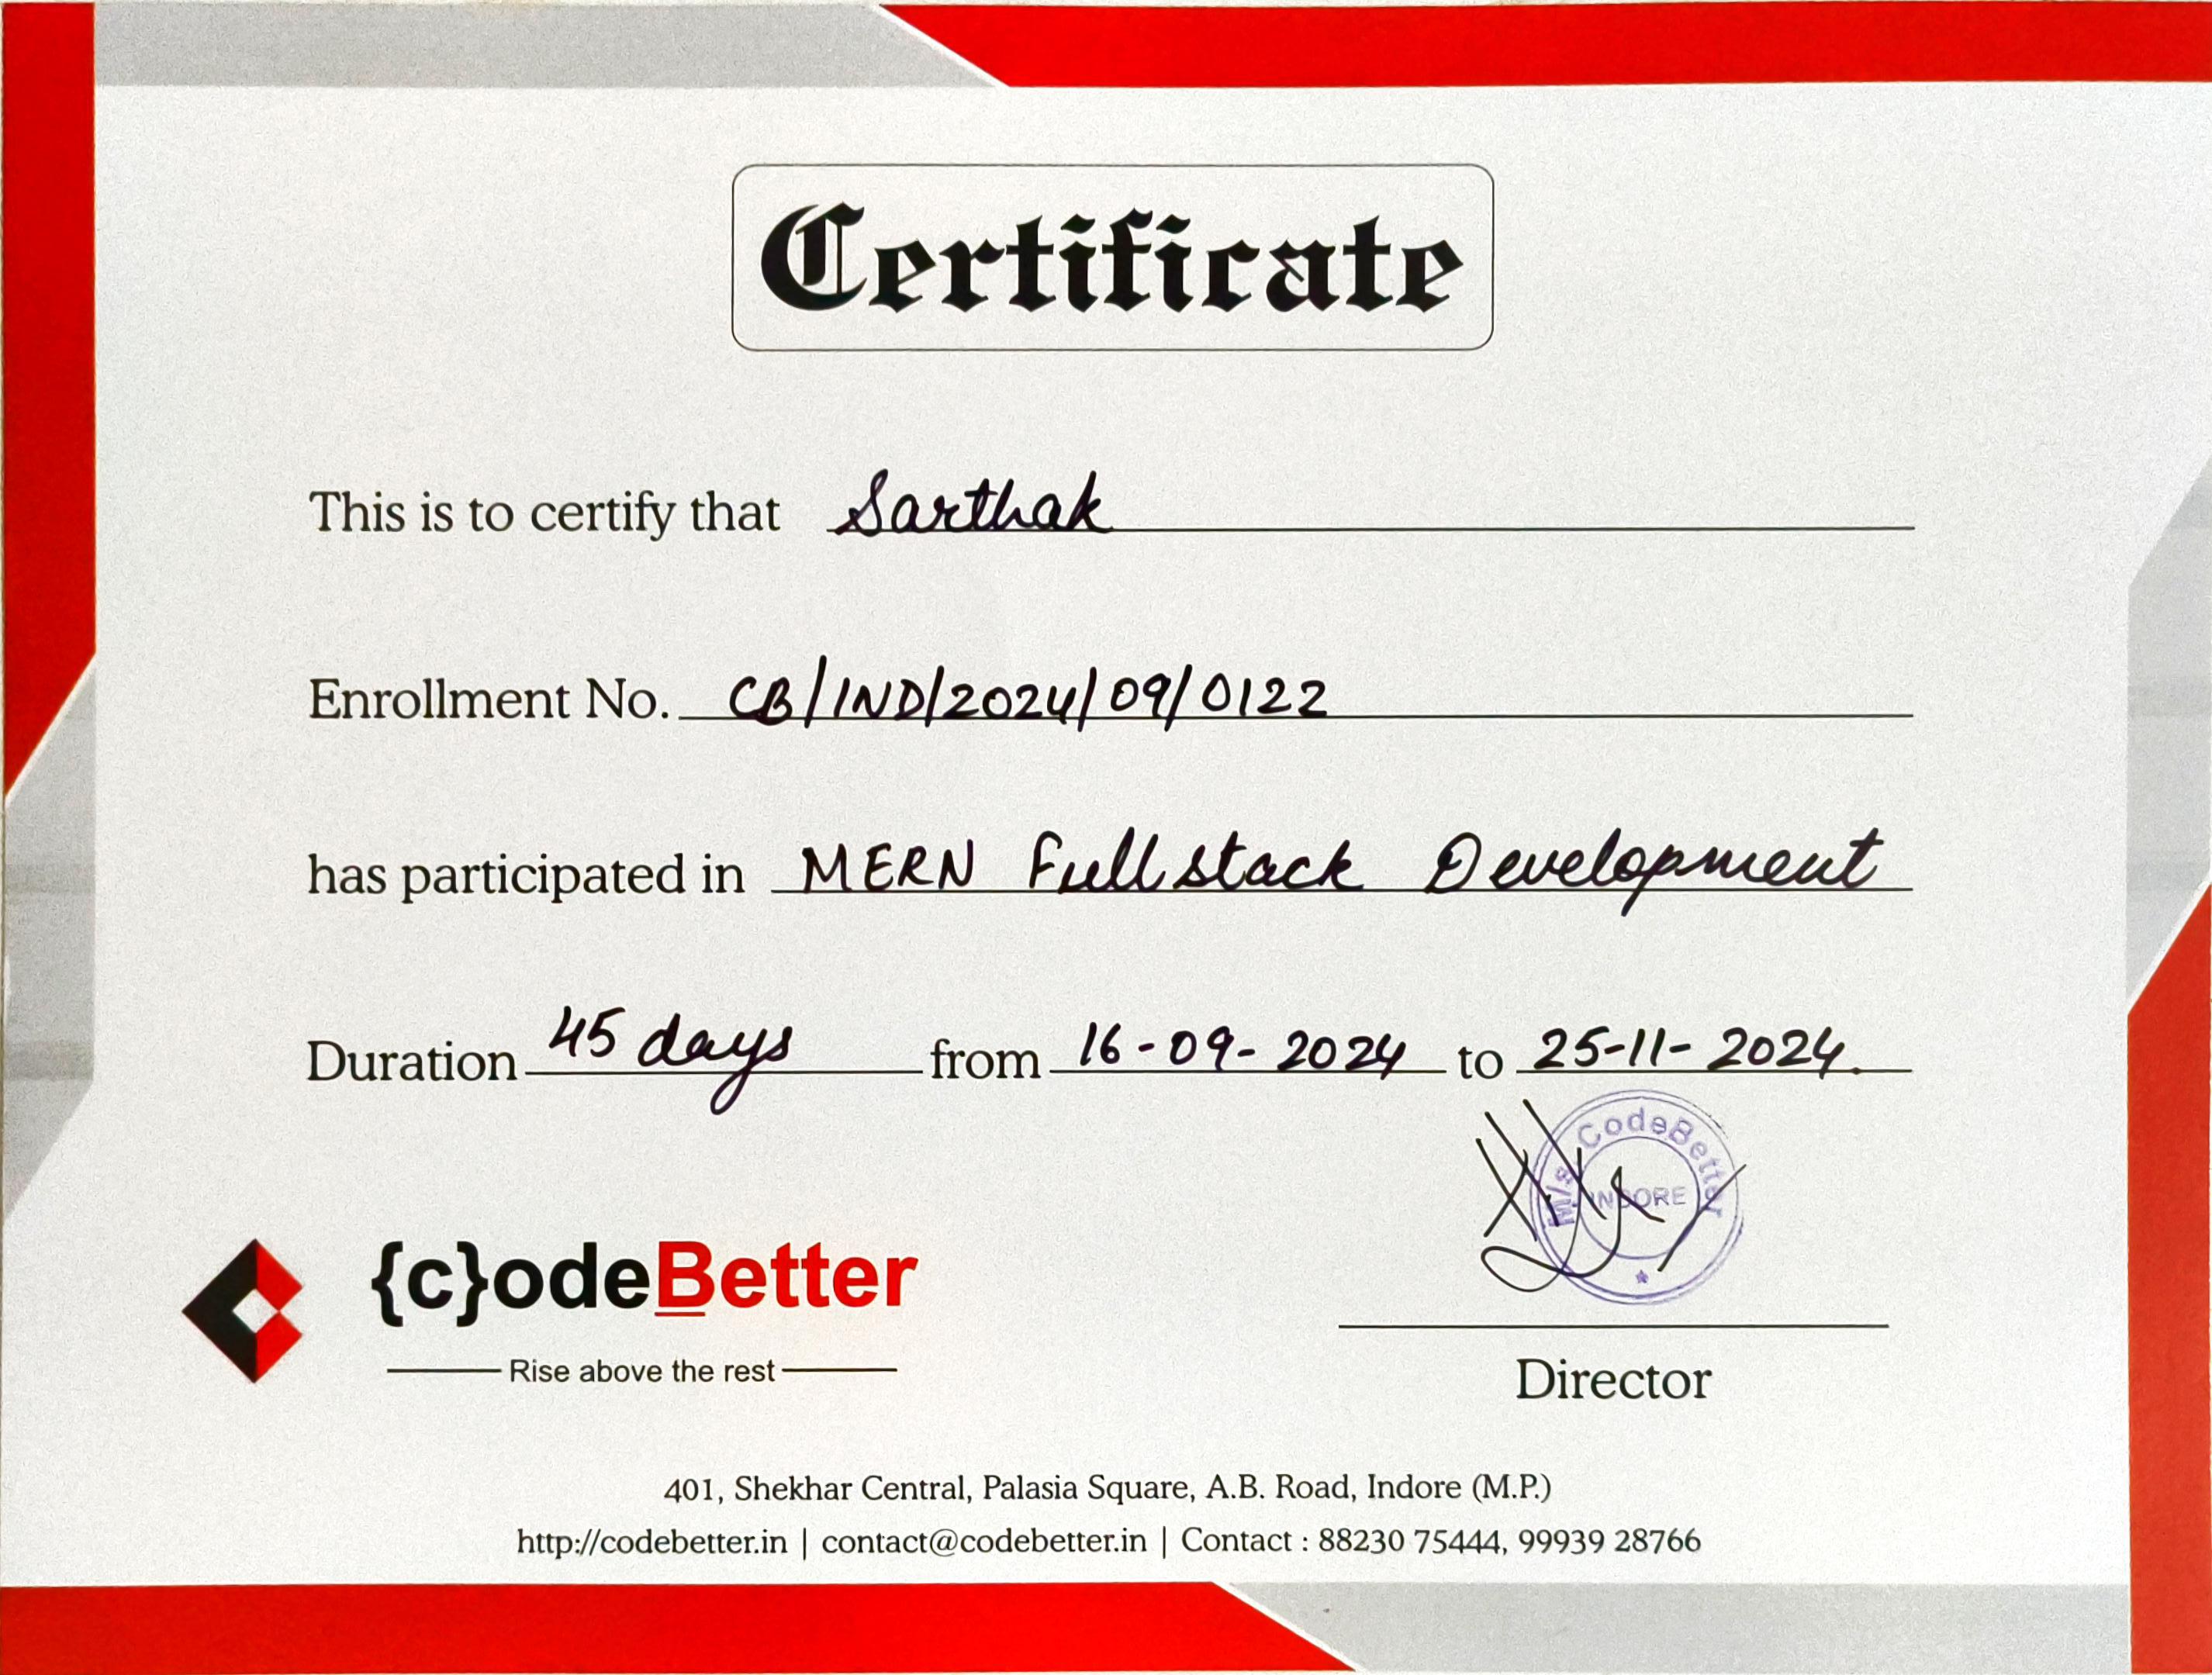 Certificate
This is to certify that Sarthak
Enrollment No. CB/IND/2024/09/0122
has participated in MERN Fullstack Development
Duration 45 days from 16-09-2024 to 25-11-2024.
M/s CodeBetter
INDORE
{c}odeBetter
Rise above the rest
Director
401, Shekhar Central, Palasia Square, A.B. Road, Indore (M.P.)
http://codebetter.in | contact@codebetter.in | Contact : 88230 75444, 99939 28766